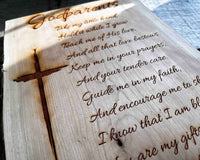 Godparents
Take my little hand
Hold it while I grow
Teach me of His love,
And all that love bestows.
Keep me in your prayers,
And your tender care.
Guide me in my faith,
And encourage me to
I know that I am bl
care my gift